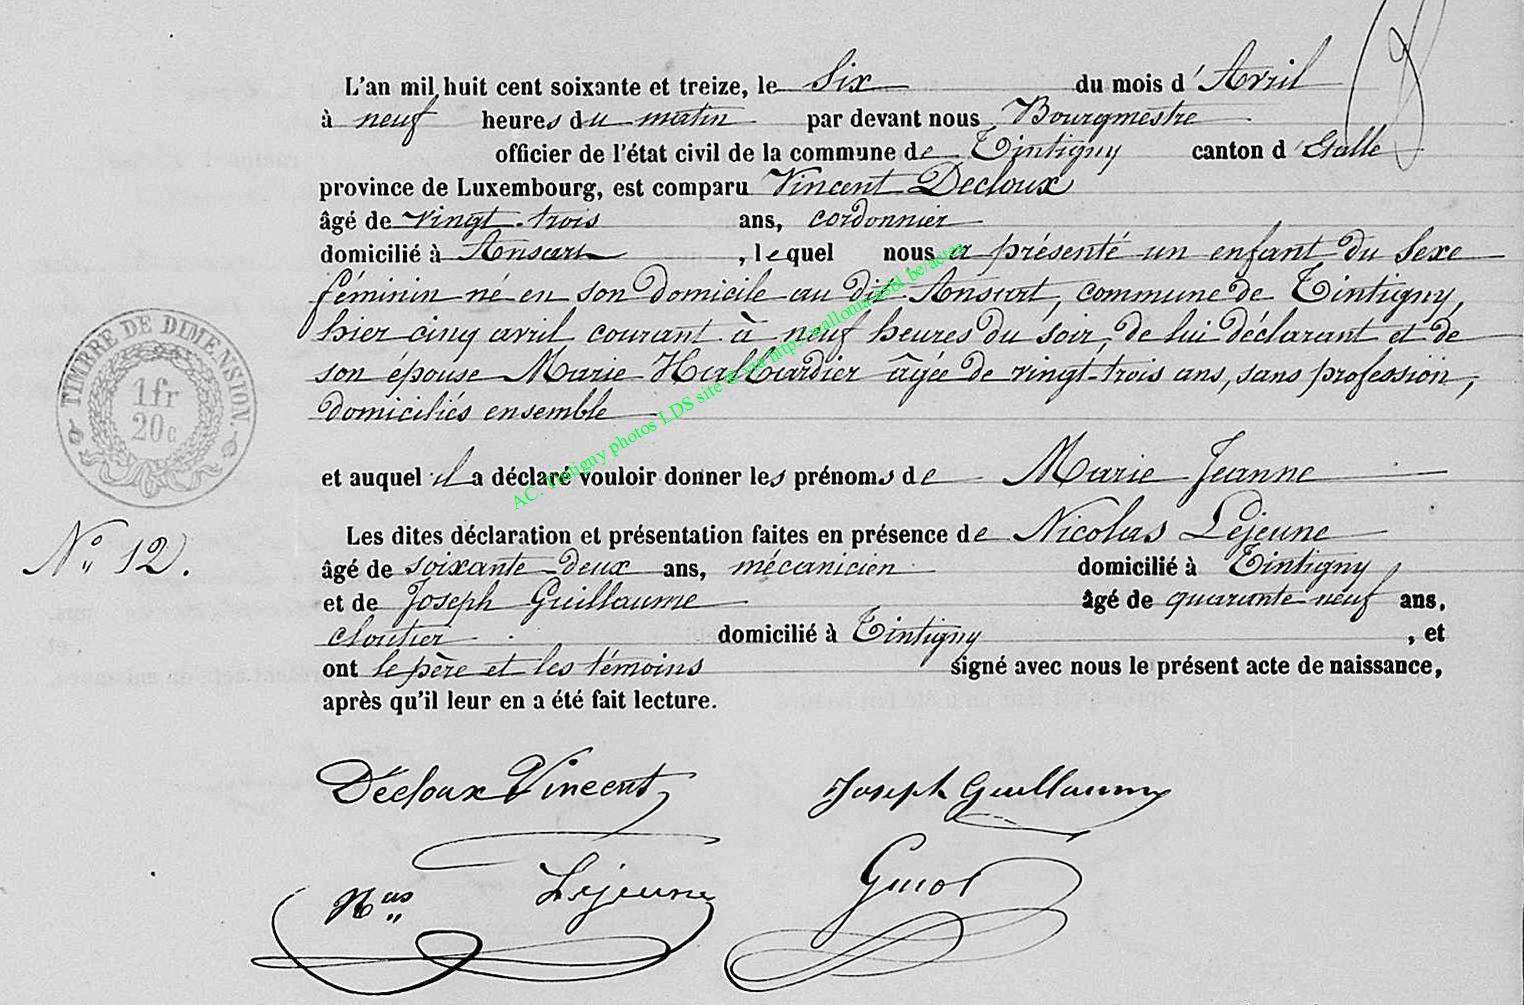 L'an mil huit cent soixante et treize, le Six du mois d'Avril
à neuf heures du matin par devant nous Bourgmestre
officier de l'état civil de la commune de Tintigny canton d'Etalle
province de Luxembourg, est comparu Vincent Decloux
âgé de vingt-trois ans, cordonnier
domicilié à Ansart, lequel nous a présenté un enfant du Sexe
féminin né en son domicile au dit Ansart, commune de Tintigny,
hier cinq avril courant à neuf heures du soir, de lui déclarant et de
son épouse Marie Hallbardier âgée de vingt-trois ans, sans profession,
domiciliés ensemble
TIMBRE DE DIMENSION.
1 fr
20 c
AC. Tintigny photos LDS site via actes
et auquel il a déclaré vouloir donner les prénoms de Marie Jeanne
Les dites déclaration et présentation faites en présence de Nicolas Lejeune
N° 12.
âgé de soixante-deux ans, mécanicien domicilié à Tintigny
et de Joseph Guillaume âgé de quarante-neuf ans,
cloutier domicilié à Tintigny, et
ont le père et les témoins signé avec nous le présent acte de naissance,
après qu'il leur en a été fait lecture.
Décloux Vincent Joseph Guillaume
Nas Lejeune